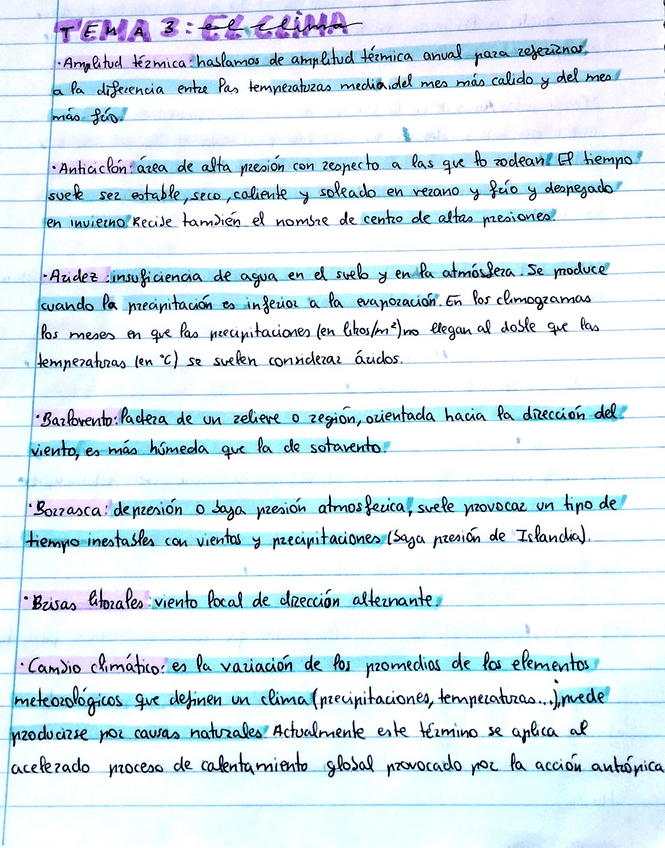 TEMA 3: EL CLIMA
· Amplitud térmica: hablamos de amplitud térmica anual para referirnos
a la diferencia entre las temperaturas media del mes más calido y del mes
más frío.
· Anticiclón: área de alta presión con respecto a las que lo rodean. El tiempo
suele ser estable, seco, caliente y soleado en verano y frío y despegado
en invierno. Recibe también el nombre de centro de altas presiones.
· Aridez: insuficiencia de agua en el suelo y en la atmósfera. Se produce
cuando la precipitación es inferior a la evaporación. En los climogramas
los meses en que las precipitaciones (en litros/m²) no llegan al doble que las
temperaturas (en °C) se suelen considerar áridos.
· Barlovento: ladera de un relieve o región, orientada hacia la dirección del
viento, es más húmeda que la de sotavento.
· Borrasca: depresión o baja presión atmosferica, suele provocar un tipo de
tiempo inestables con vientos y precipitaciones (baja presión de Islandia).
· Brisas litorales: viento local de dirección alternante.
· Cambio climático: es la variación de los promedios de los elementos
meteorológicos que definen un clima (precipitaciones, temperaturas...), puede
producirse por causas naturales. Actualmente este término se aplica al
acelerado proceso de calentamiento global provocado por la acción antrópica